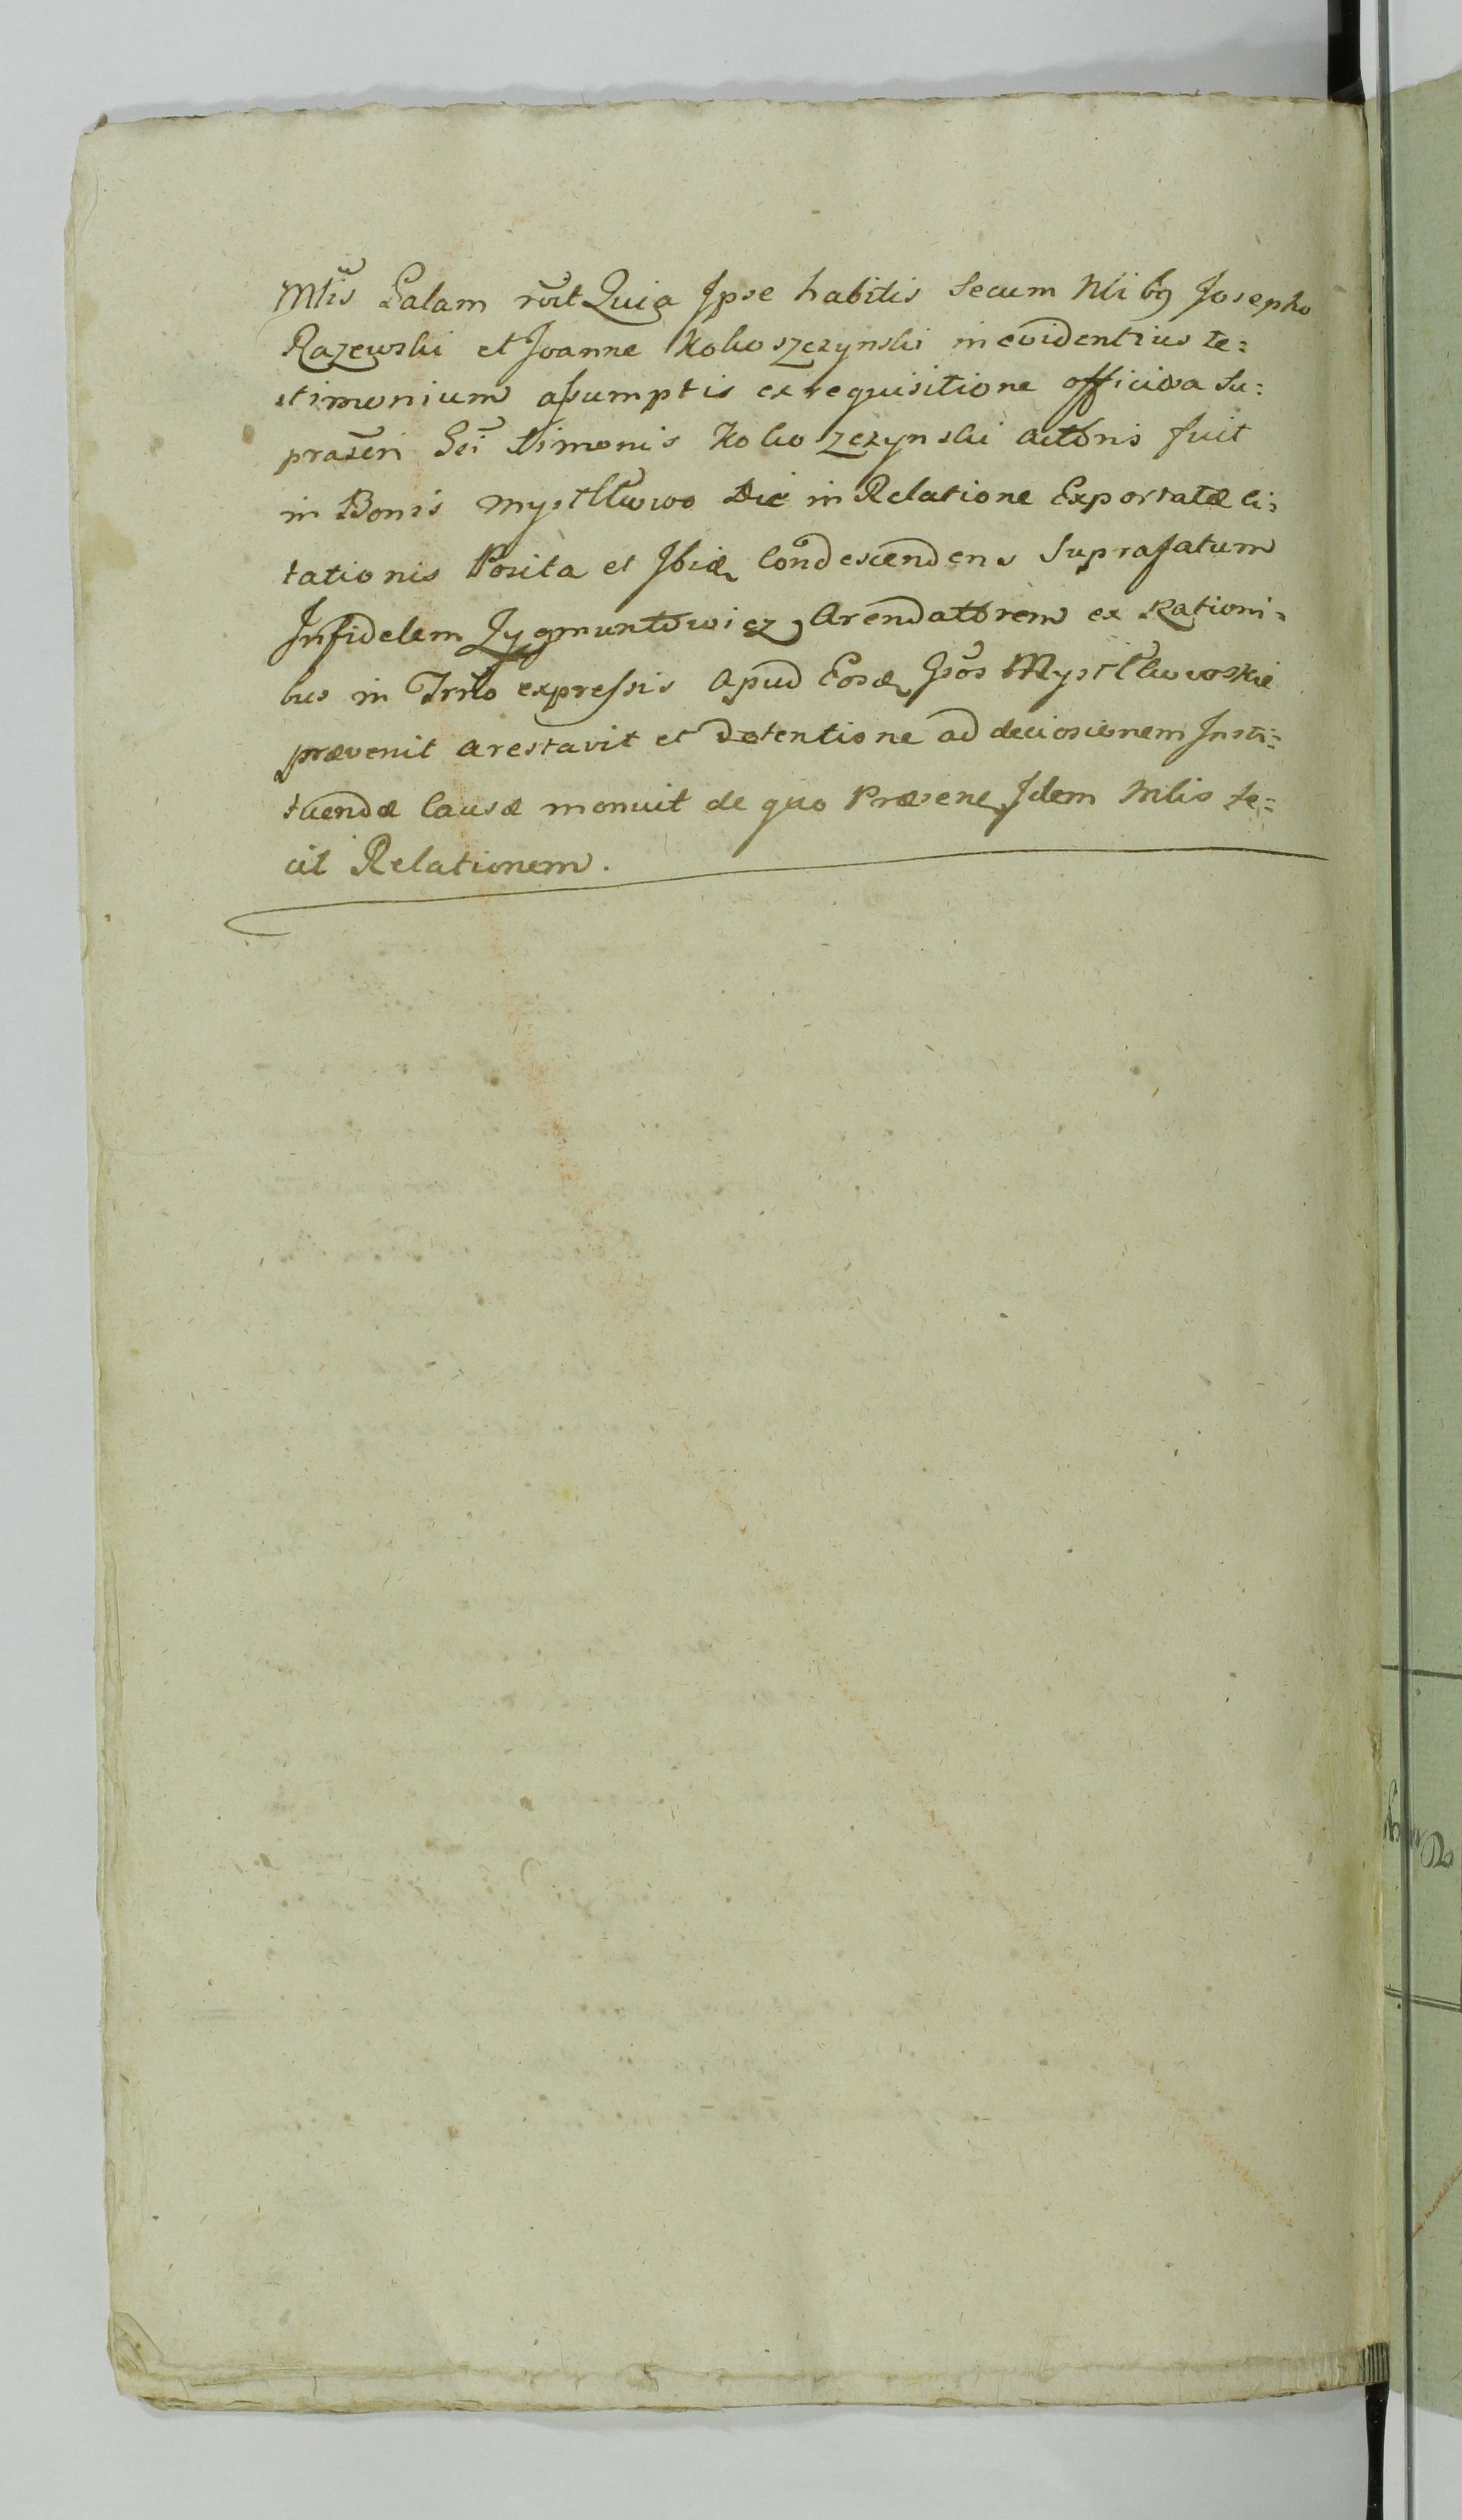 Mlis Palam rōit Quia Ipse habitis Secum Nlibq Josepho
Razewski et Joanne Kokoszczynski in evidentius te=
stimonium assumptis ex requisitione officiosa Su=
prascri Gsi Simonis Kokoszczynski actoris fuit
in Bonis Mystkowo Die in Relatione Exportatæ Ci=
tationis Posita et Ibidq Condescendens Suprafatum
Infidelem Zygmuntowicz Arendatorem ex Rationi=
bus in Trilo expressis Apud Eosdq Gsos Mystkowskie
prævenit arestavit et detentione ad decisionem Insti=
tuendæ Causæ monuit de quo Præsens Idem Mlis fe=
cit Relationem.